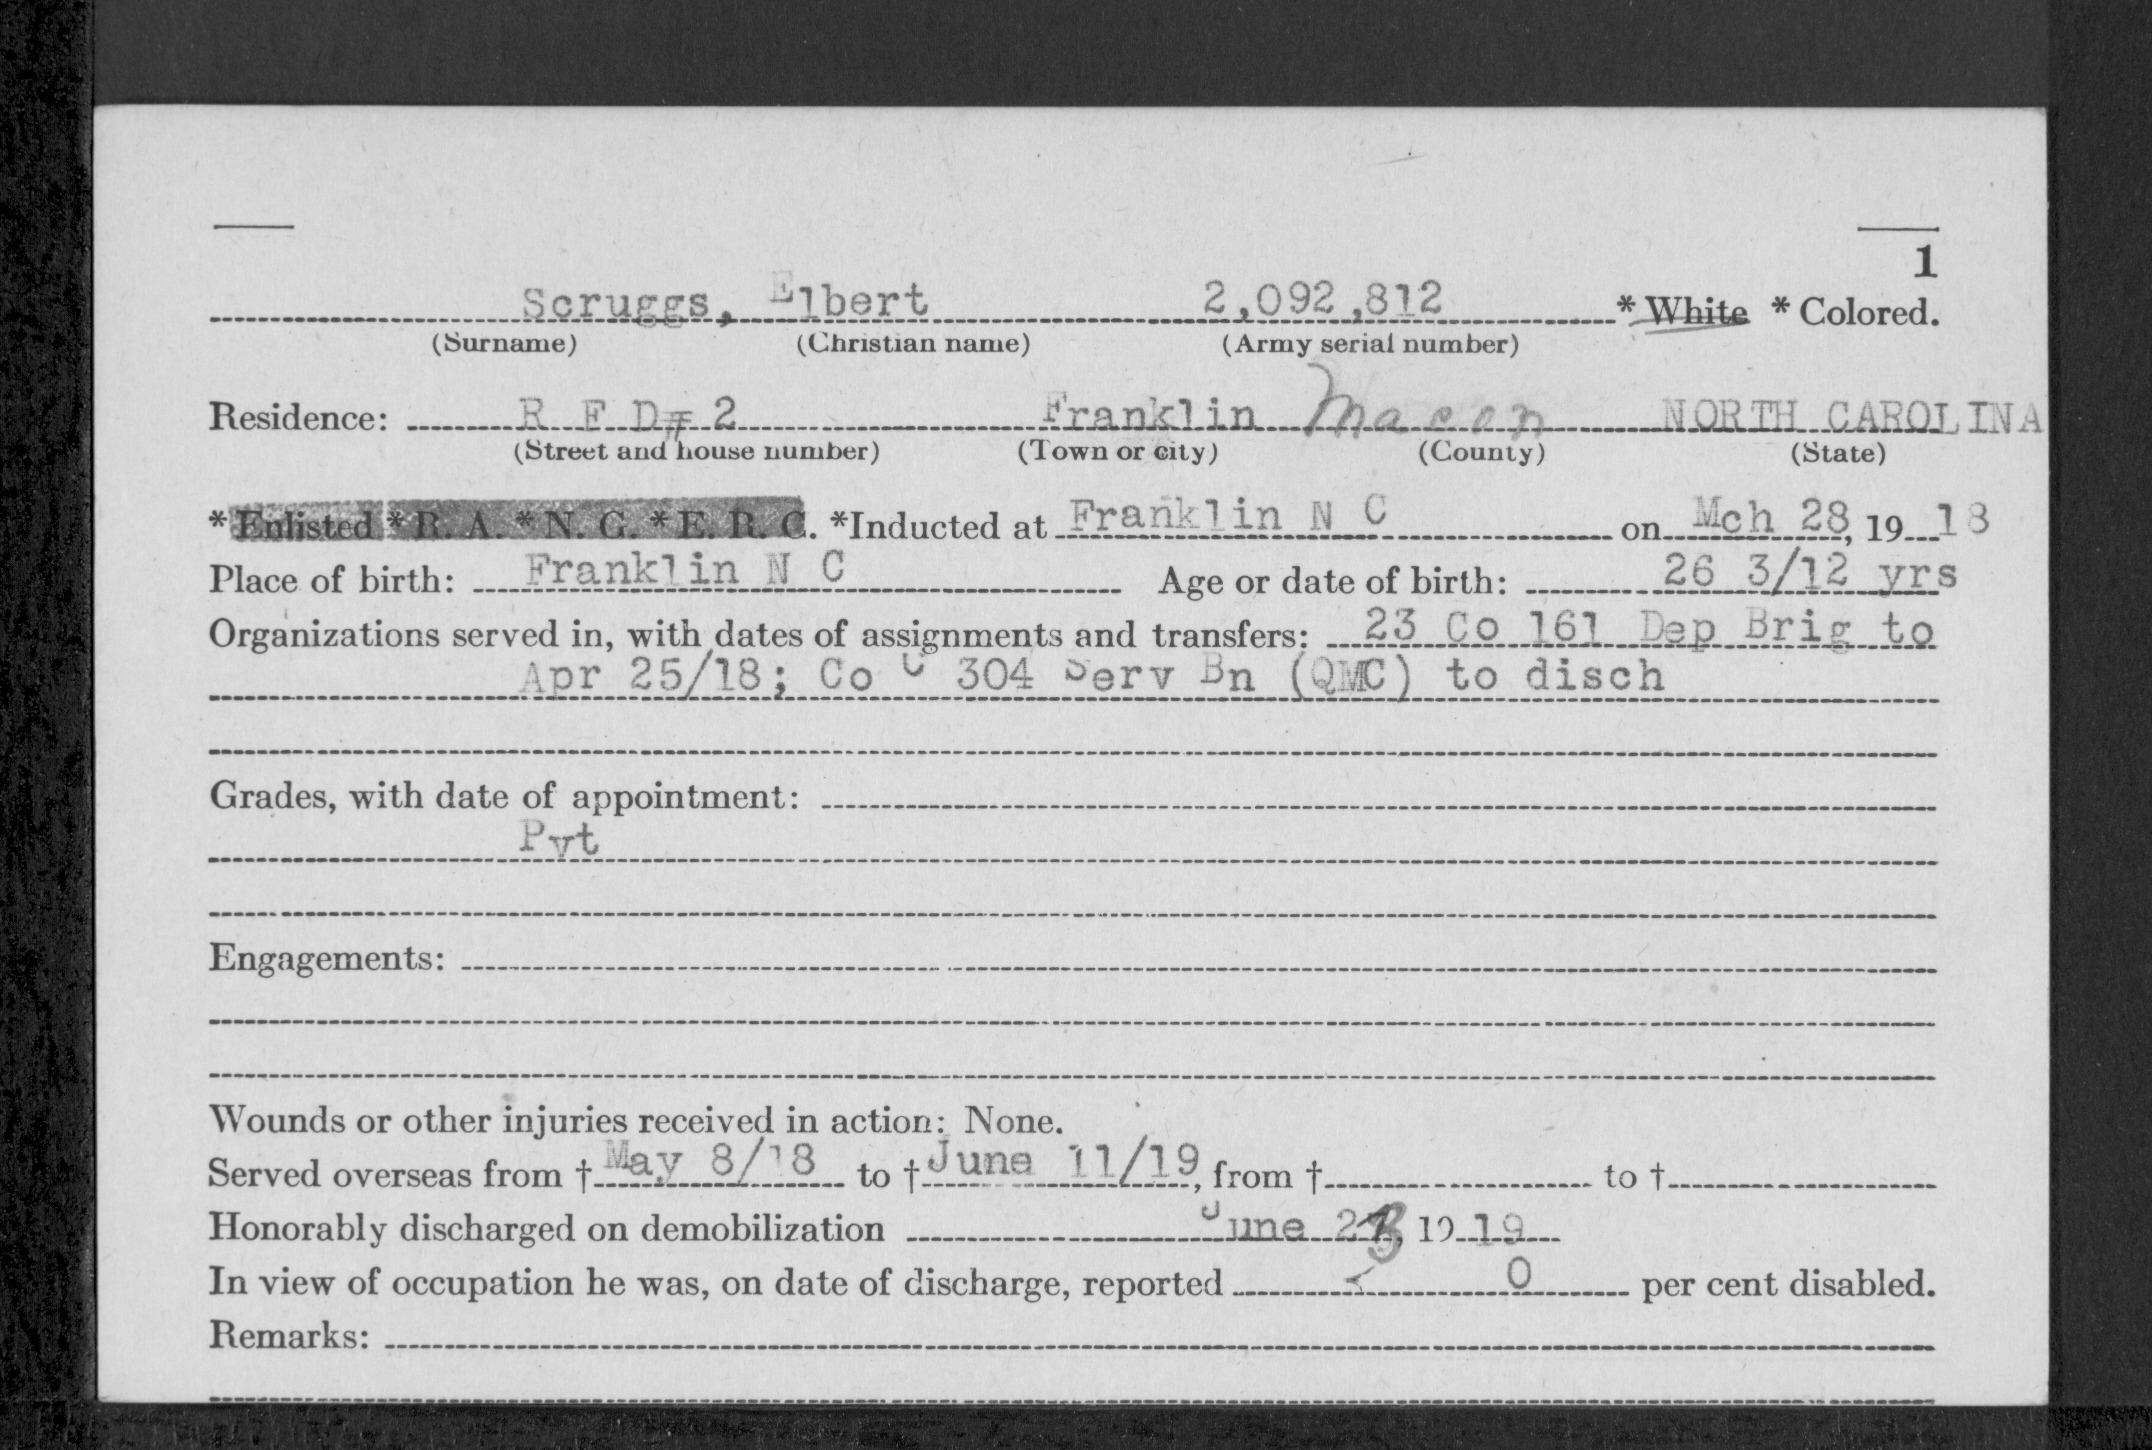 1
Scruggs, Elbert 2,092,812 * White * Colored.
(Surname) (Christian name) (Army serial number)
Residence: R F D# 2 Franklin Macon NORTH CAROLINA
(Street and house number) (Town or city) (County) (State)
* Enlisted * R. A. * N. G. * E. R. C. *Inducted at Franklin N C on Mch 28, 19 18
Place of birth: Franklin N C Age or date of birth: 26 3/12 yrs
Organizations served in, with dates of assignments and transfers: 23 Co 161 Dep Brig to
Apr 25/18; Co C 304 Serv Bn (QMC) to disch
Grades, with date of appointment:
Pvt
Engagements:
Wounds or other injuries received in action: None.
Served overseas from † May 8/18 to † June 11/19, from † to †
Honorably discharged on demobilization June 23, 19 19
In view of occupation he was, on date of discharge, reported 0 per cent disabled.
Remarks: